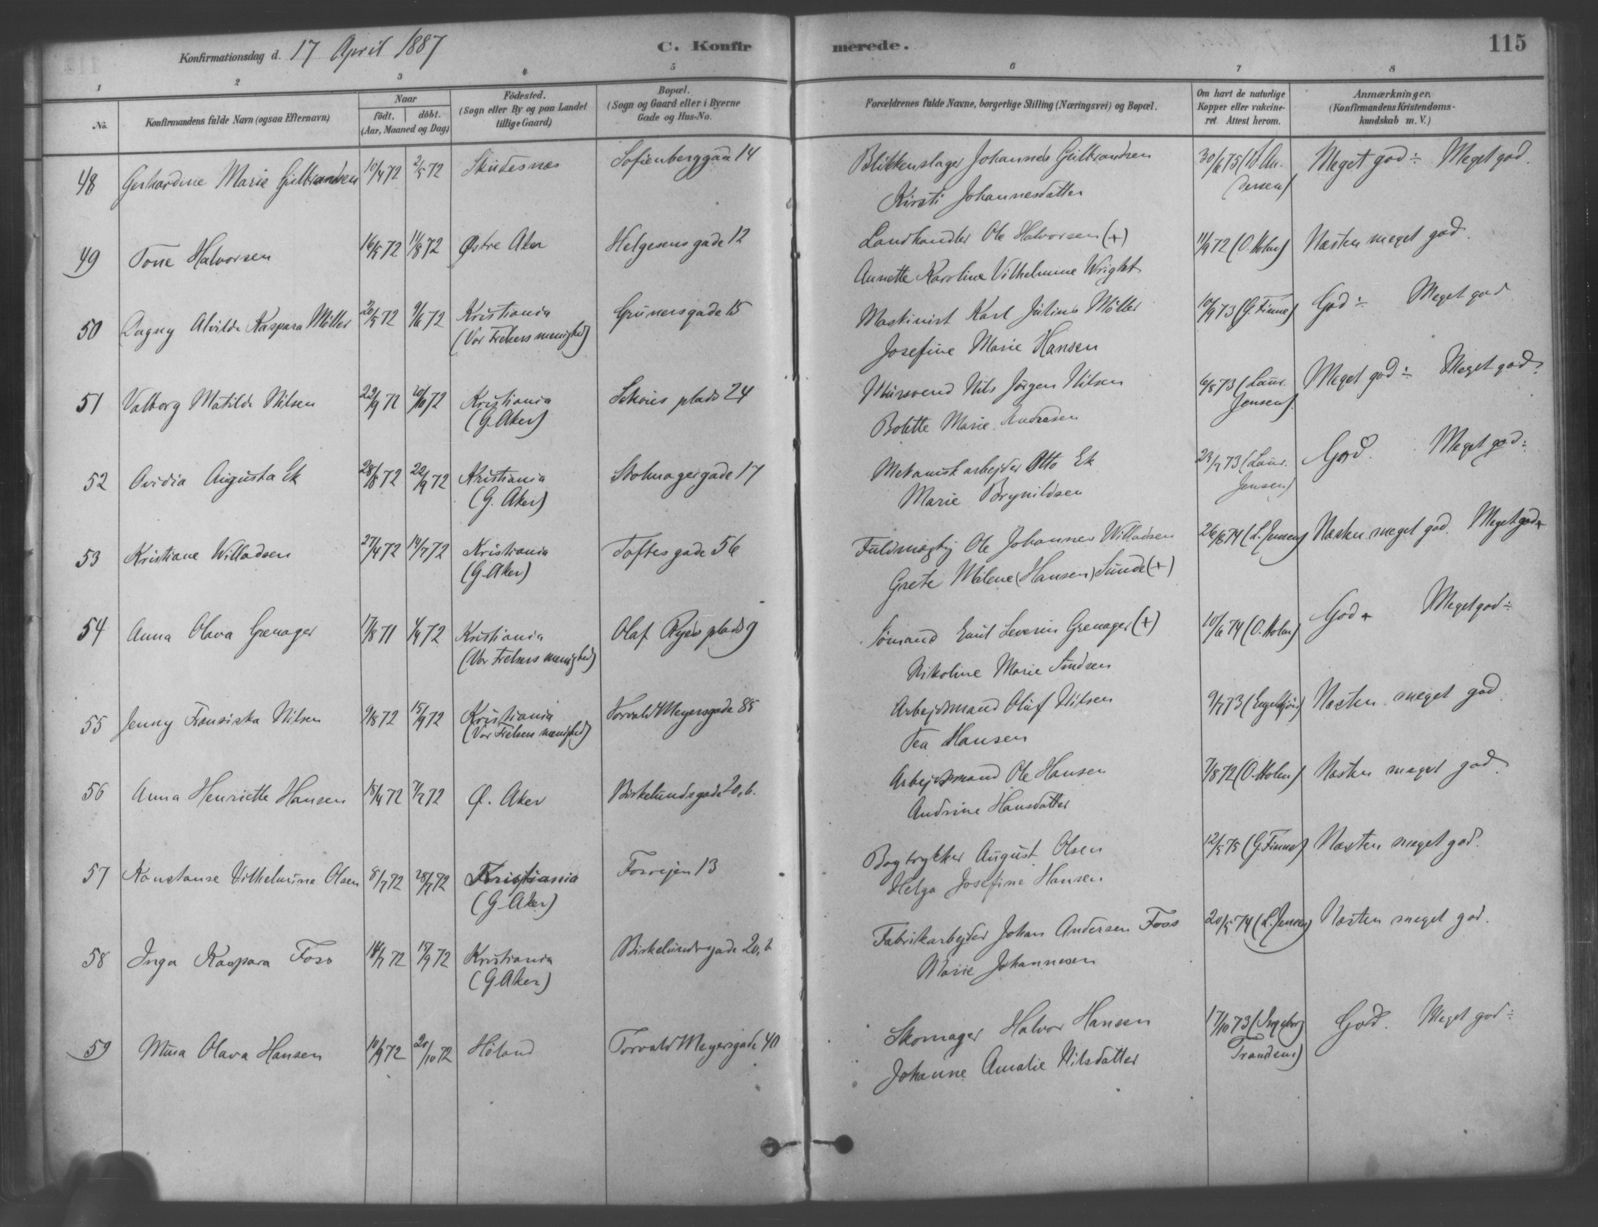 Konfirmationsdag d. 17 April 1887
C. Konfirmerede.
115
1 2 3 4 5 6 7 8
No.
Konfirmandens fulde Navn (ogsaa Efternavn)
Naar
födt. döbt.
(Aar, Maaned og Dag)
Födested.
(Sogn eller By og paa Landet
tillige Gaard)
Bopæl.
(Sogn og Gaard eller i Byerne
Gade og Hus-No.
Forældrenes fulde Navne, borgerlige Stilling (Næringsvei) og Bopæl.
Om havt de naturlige
Kopper eller vakcine-
ret Attest herom.
Anmærkninger.
(Konfirmandens Kristendoms-
kundskab m. V.)
48 Gerhardine Marie Gulbrandsen 10/4 72 2/5 72 Skudesnæs Sofienberggaa 14 Blikkenslager Johannes Gulbrandsen 30/6 75 (Andersen) Meget god ÷ Meget god.
Kirsti Johannesdatter
49 Tone Halvorsen 16/5 72 11/8 72 Østre Aker Helgesens gade 12 Landhandler Ole Halvorsen (+) 11/9 72 (O. Holm) Næsten meget god.
Annette Karoline Vilhelmine Wright
50 Dagny Alvilde Kaspara Möller 20/5 72 9/6 72 Kristiania Grünersgade 15 Maskinist Karl Julius Möller 10/9 73 (G. Finne) God ÷ Meget god
(Vor Frelsers menighed) Josefine Marie Hansen
51 Valborg Matilde Nilsen 29/9 71 10/72 Kristiania Schous plads 24 Mursvend Nils Jørgen Nilsen 6/8 73 (Laur. Jensen) Meget god ÷ Meget god.
(G. Aker) Bolette Marie Andersen
52 Ovidia Augusta Ek 28/8 72 22/9 72 Kristiania Stolmagergade 17 Mekanisk arbejder Otto Ek 73 (Laur. Jensen) God. Meget god ÷
(G. Aker) Marie Brynildsen
53 Kristiane Willadsen 27/4 72 14/7 72 Kristiania Toftes gade 56 Fuldmægtig Ole Johannes Willadsen 26/8 74 (L. Jensen) Næsten meget god. Meget god +
(G. Aker) Grete Milene (Hansen) Sunde (+)
54 Anna Olava Grenager 17/8 71 1/4 72 Kristiania Olaf Ryes plads 9 Sømand Emil Severin Grenager (+) 10/6 74 (O. Holm) God + Meget god ÷
(Vor Frelsers menighed) Nikoline Marie Knudsen
55 Jenny Fransiska Nilsen 9/8 72 15/9 72 Kristiania Torvald Meyersgade 85 Arbejdsmand Olaf Nilsen 9/7 73 Næsten meget god.
(Vor Frelsers menighed) Tea Hansen
56 Anna Henriette Hansen 15/4 72 7/7 72 Ø. Aker Birkelundsgade 20, b. Arbejdsmand Ole Hansen 7/8 72 (O. Holm) Næsten meget god
Andrine Hansdatter
57 Konstanse Vilhelmine Olsen 5/7 72 28/7 72 Kristiania Fosvejen 13 Bogtrykker August Olsen 12/5 75 (G. Finne) Næsten meget god.
(G. Aker) Helga Josefine Hansen
58 Inga Kaspara Foss 14/7 72 15/9 72 Kristiania Birkelundsgade 20, b Fabrikarbejder Johan Andersen Foss 20/5 74 (L. Jensen) Næsten meget god.
(G. Aker) Marie Johannesen
59 Mina Olava Hansen 10/9 72 20/10 72 Høland Torvald Meyersgade 40 Skomager Halvor Hansen 17/10 73 (Ingeborg Trandem) God. Meget god ÷
Johanne Amalie Nilsdatter